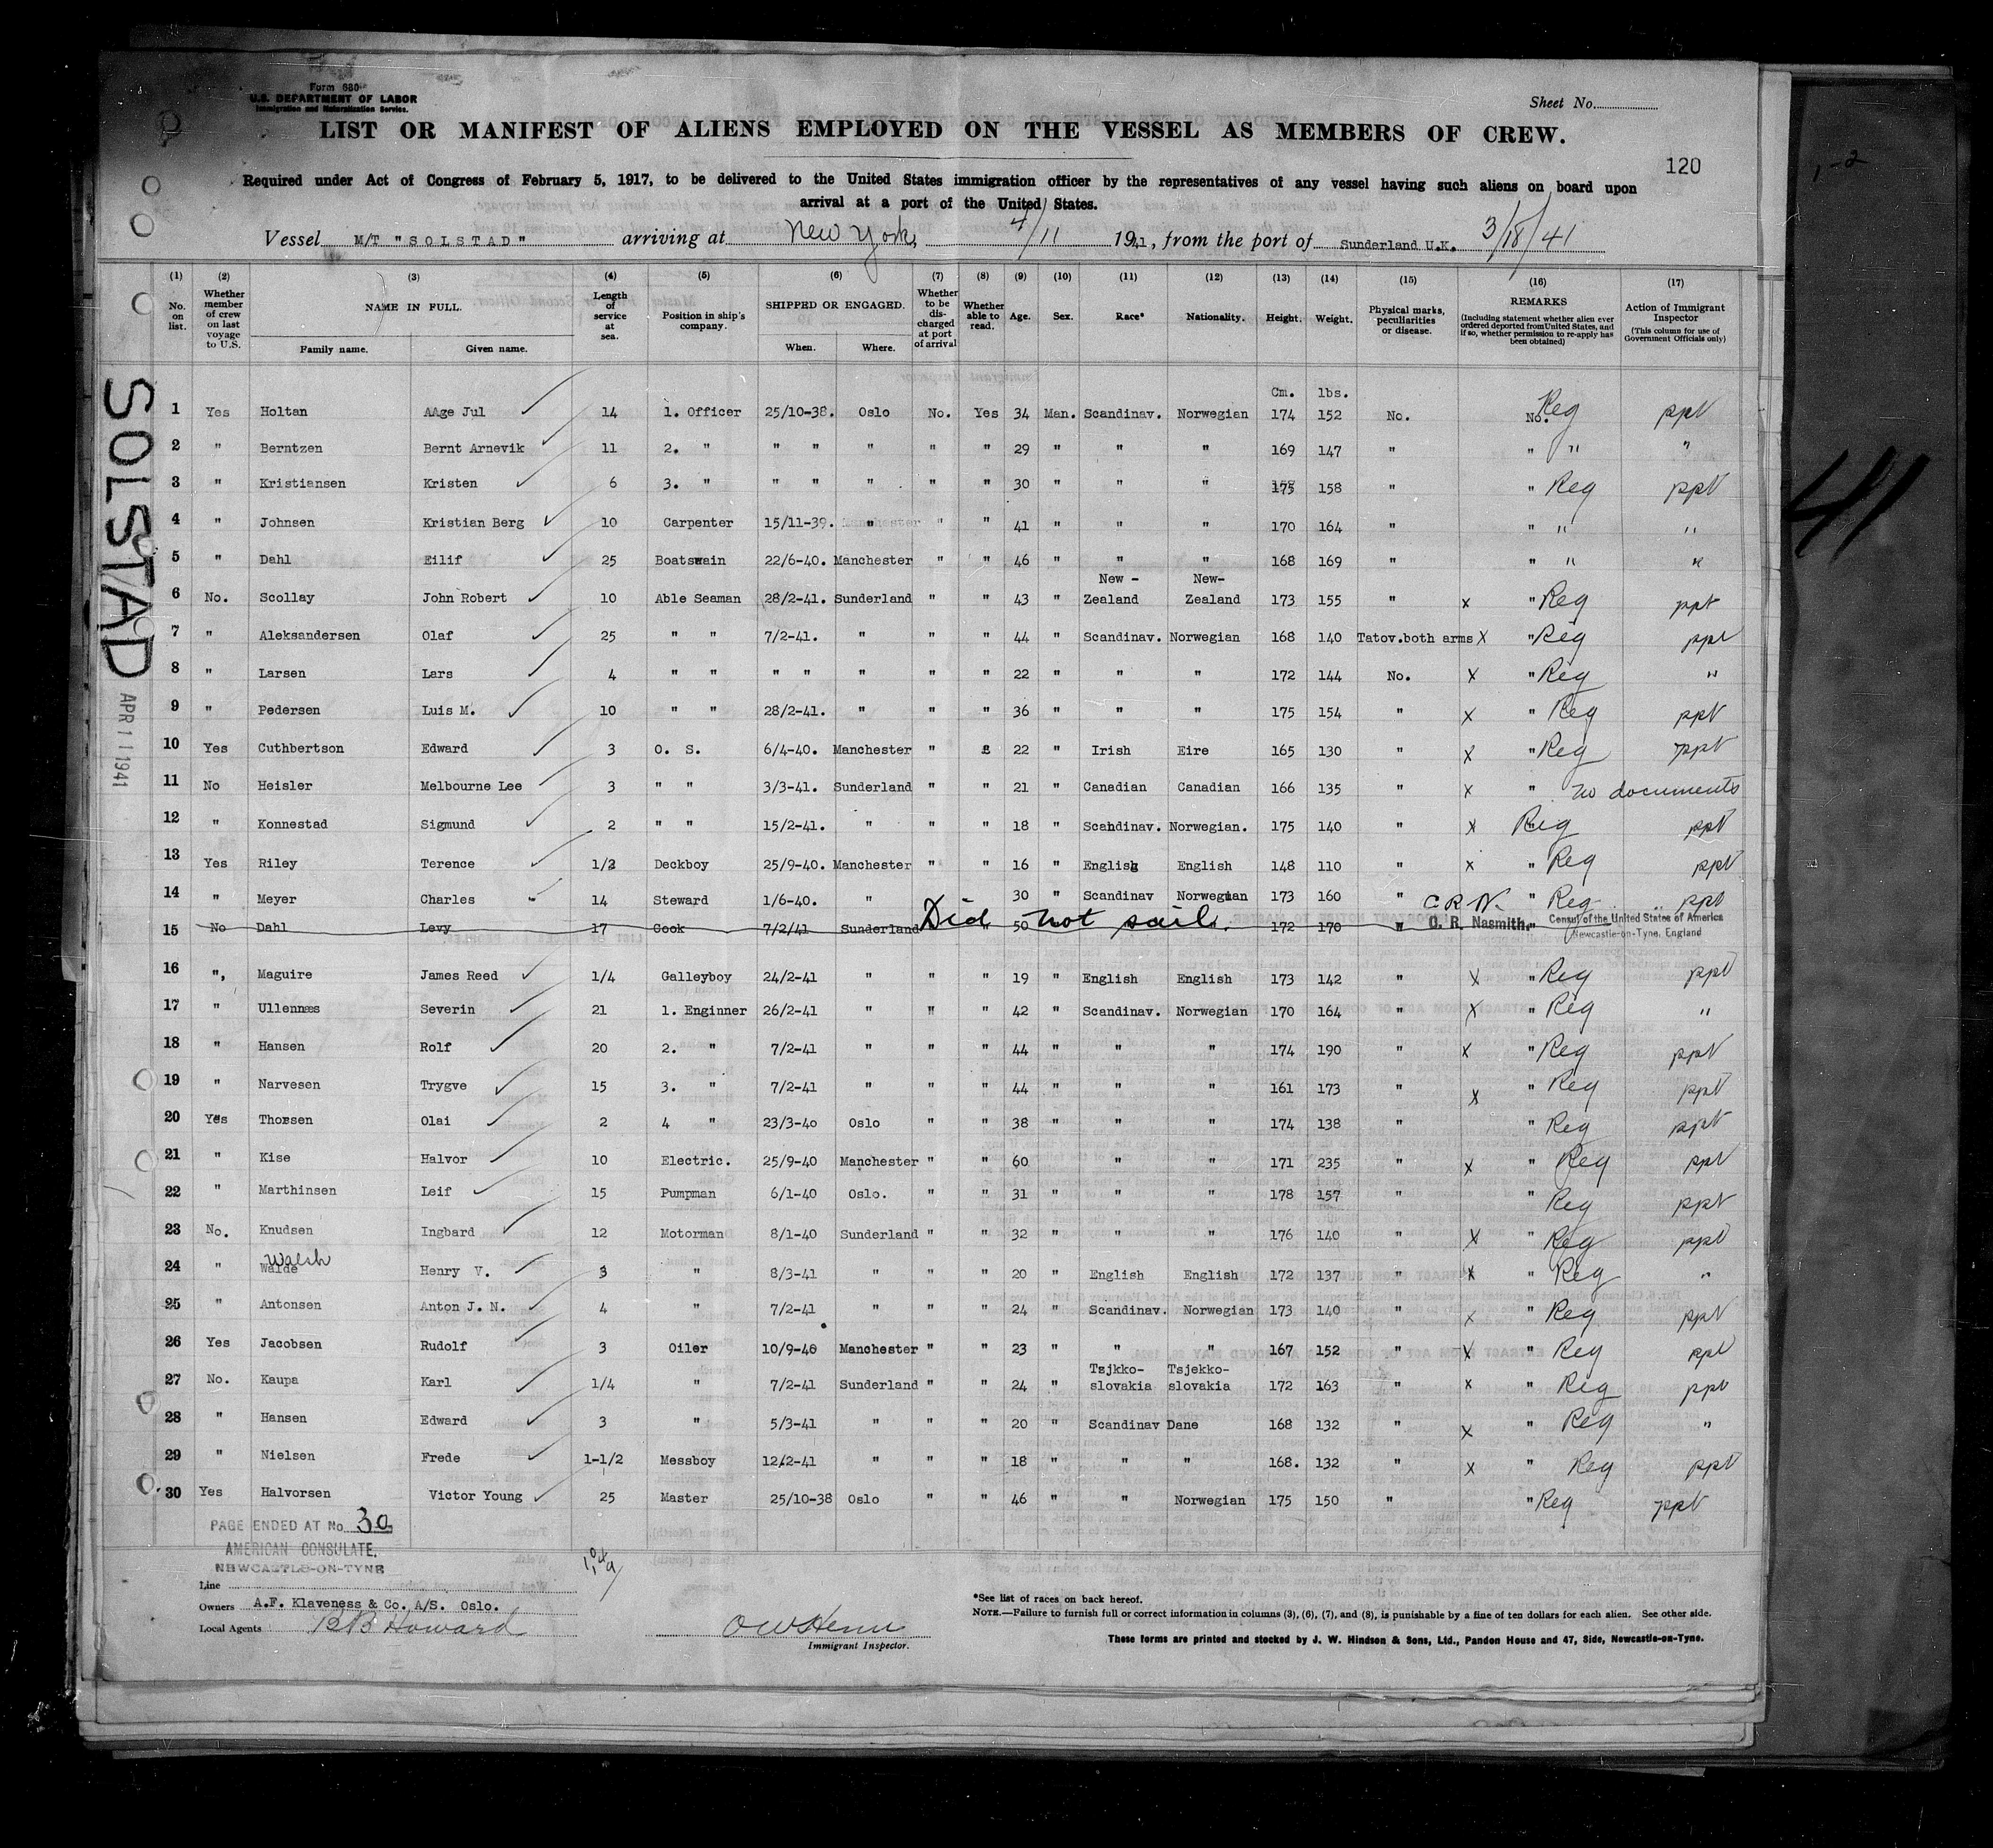 Form 680
U.S. DEPARTMENT OF LABOR
Immigration and Naturalization Service.
Sheet No.
LIST OR MANIFEST OF ALIENS EMPLOYED ON THE VESSEL AS MEMBERS OF CREW.
120
Required under Act of Congress of February 5, 1917, to be delivered to the United States immigration officer by the representatives of any vessel having such aliens on board upon
arrival at a port of the United States.
Vessel M/T "SOLSTAD" arriving at New York, 4/11 1941, from the port of Sunderland U.K. 3/18/41
(1) (2) (3) (4) (5) (6) (7) (8) (9) (10) (11) (12) (13) (14) (15) (16) (17)
No. on list. Whether member of crew on last voyage to U.S. NAME IN FULL. Family name. Given name. Length of service at sea. Position in ship's company. SHIPPED OR ENGAGED. When. Where. Whether to be discharged at port of arrival Whether able to read. Age. Sex. Race* Nationality. Height. Weight. Physical marks, peculiarities or disease. REMARKS (Including statement whether alien ever ordered deported from United States, and if so, whether permission to re-apply has been obtained) Action of Immigrant Inspector (This column for use of Government Officials only)
Cm. lbs.
1 Yes Holtan AAge Jul 14 1. Officer 25/10-38. Oslo No. Yes 34 Man. Scandinav. Norwegian 174 152 No. No. Reg ppt
2 " Berntzen Bernt Arnevik 11 2. " " " " " " 29 " " " 169 147 " " " "
3 " Kristiansen Kristen 6 3. " " " " " " 30 " " " 175 158 " " Reg ppt
4 " Johnsen Kristian Berg 10 Carpenter 15/11-39. " " " 41 " " " 170 164 " " " "
5 " Dahl Eilif 25 Boatswain 22/6-40. Manchester " " 46 " " " 168 169 " " " "
6 No. Scollay John Robert 10 Able Seaman 28/2-41. Sunderland " " 43 " New - Zealand New- Zealand 173 155 " x " Reg ppt
7 " Aleksandersen Olaf 25 " " 7/2-41. " " " 44 " Scandinav. Norwegian 168 140 Tatov.both arms X " Reg ppt
8 " Larsen Lars 4 " " " " " " " 22 " " " 172 144 No. X " Reg "
9 " Pedersen Luis M. 10 " " 28/2-41. " " " 36 " " " 175 154 " X " Reg ppt
10 Yes Cuthbertson Edward 3 O. S. 6/4-40. Manchester " " 22 " Irish Eire 165 130 " X " Reg ppt
11 No Heisler Melbourne Lee 3 " " 3/3-41. Sunderland " " 21 " Canadian Canadian 166 135 " X " no documents
12 " Konnestad Sigmund 2 " " 15/2-41. " " " 18 " Scandinav. Norwegian. 175 140 " X " Reg ppt
13 Yes Riley Terence 1/2 Deckboy 25/9-40. Manchester " " 16 " English English 148 110 " x " Reg ppt
14 " Meyer Charles 14 Steward 1/6-40. " 30 " Scandinav Norwegian 173 160 " C R N. " Reg ppt
15 No Dahl Levy 17 Cook 7/2/41 Sunderland Did not sail. " 50 172 170 " C. R. Nasmith. " Consul of the United States of America
Newcastle-on-Tyne, England
16 ", Maguire James Reed 1/4 Galleyboy 24/2-41 " " " 19 " English English 173 142 " X " Reg ppt
17 " Ullennæs Severin 21 1. Enginner 26/2-41 " " " 42 " Scandinav. Norwegian 170 164 " X " Reg "
18 " Hansen Rolf 20 2. " 7/2-41 " " " 44 " " " 174 190 " X " Reg ppt
19 " Narvesen Trygve 15 3. " 7/2-41 " " " 44 " " " 161 173 " X " Reg ppt
20 Yes Thorsen Olai 2 4 " 23/3-40 Oslo " " 38 " " " 174 138 " " Reg ppt
21 " Kise Halvor 10 Electric. 25/9-40 Manchester " " 60 " " 171 235 " X " Reg ppt
22 " Marthinsen Leif 15 Pumpman 6/1-40 Oslo. " " 31 " " " 178 157 " " Reg ppt
23 No. Knudsen Ingbard 12 Motorman 8/1-40 Sunderland " " 32 " " " 176 140 " X " Reg ppt
24 " Walde Walsh Henry V. 3 " 8/3-41 " " " 20 " English English 172 137 " X " Reg "
25 " Antonsen Anton J. N. 4 " 7/2-41 " " " 24 " Scandinav. Norwegian 173 140 " X " Reg ppt
26 Yes Jacobsen Rudolf 3 Oiler 10/9-40 Manchester " " 23 " " " 167 152 " X " Reg ppt
27 No. Kaupa Karl 1/4 " 7/2-41 Sunderland " " 24 " Tzjkko- slovakia Tsjekko- slovakia 172 163 " x " Reg ppt
28 " Hansen Edward 3 " 5/3-41 " " " 20 " Scandinav Dane 168 132 " X " Reg "
29 " Nielsen Frede 1-1/2 Messboy 12/2-41 " " " 18 " " " 168. 132 " X " Reg ppt
30 Yes Halvorsen Victor Young 25 Master 25/10-38 Oslo " " 46 " " Norwegian 175 150 " " Reg ppt
PAGE ENDED AT No 30
AMERICAN CONSULATE.
NEWCASTLE-ON-TYNE
Line
Owners A.F. Klaveness & Co. A/S. Oslo.
Local Agents B B Howard
Immigrant Inspector.
*See list of races on back hereof.
NOTE.—Failure to furnish full or correct information in columns (3), (6), (7), and (8), is punishable by a fine of ten dollars for each alien. See other side.
These forms are printed and stocked by J. W. Hindson & Sons, Ltd., Pandon House and 47, Side, Newcastle-on-Tyne.
SOLSTAD
APR 11 1941
1-2
41